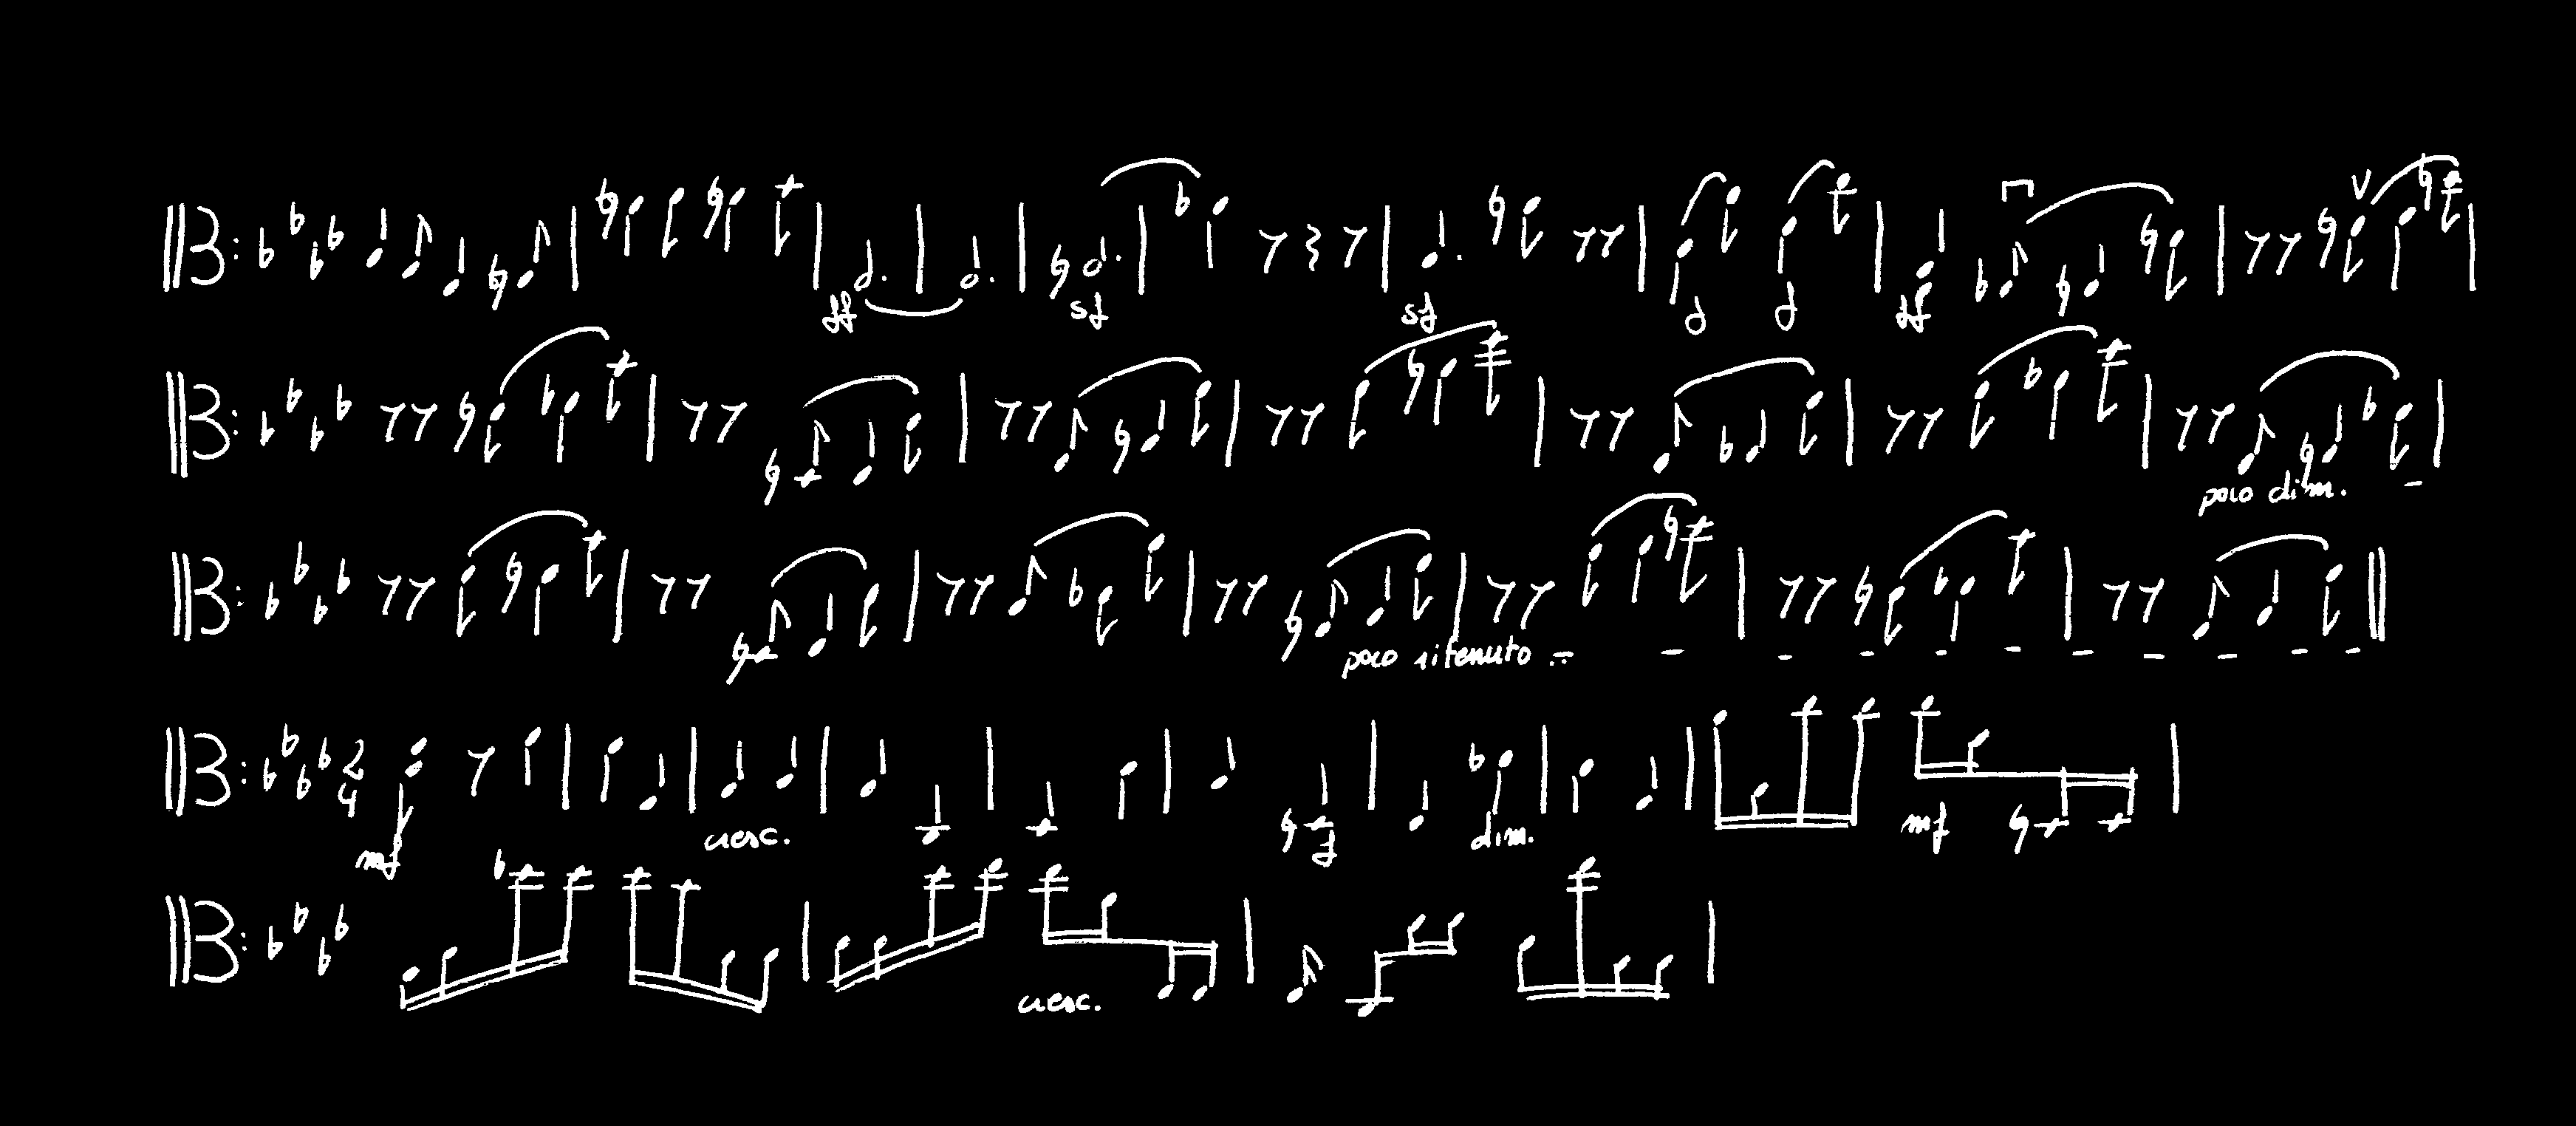 ff sf sf ff
poco dim.
poco ritenuto
2 4 mf cresc. f dim. mf
cresc.